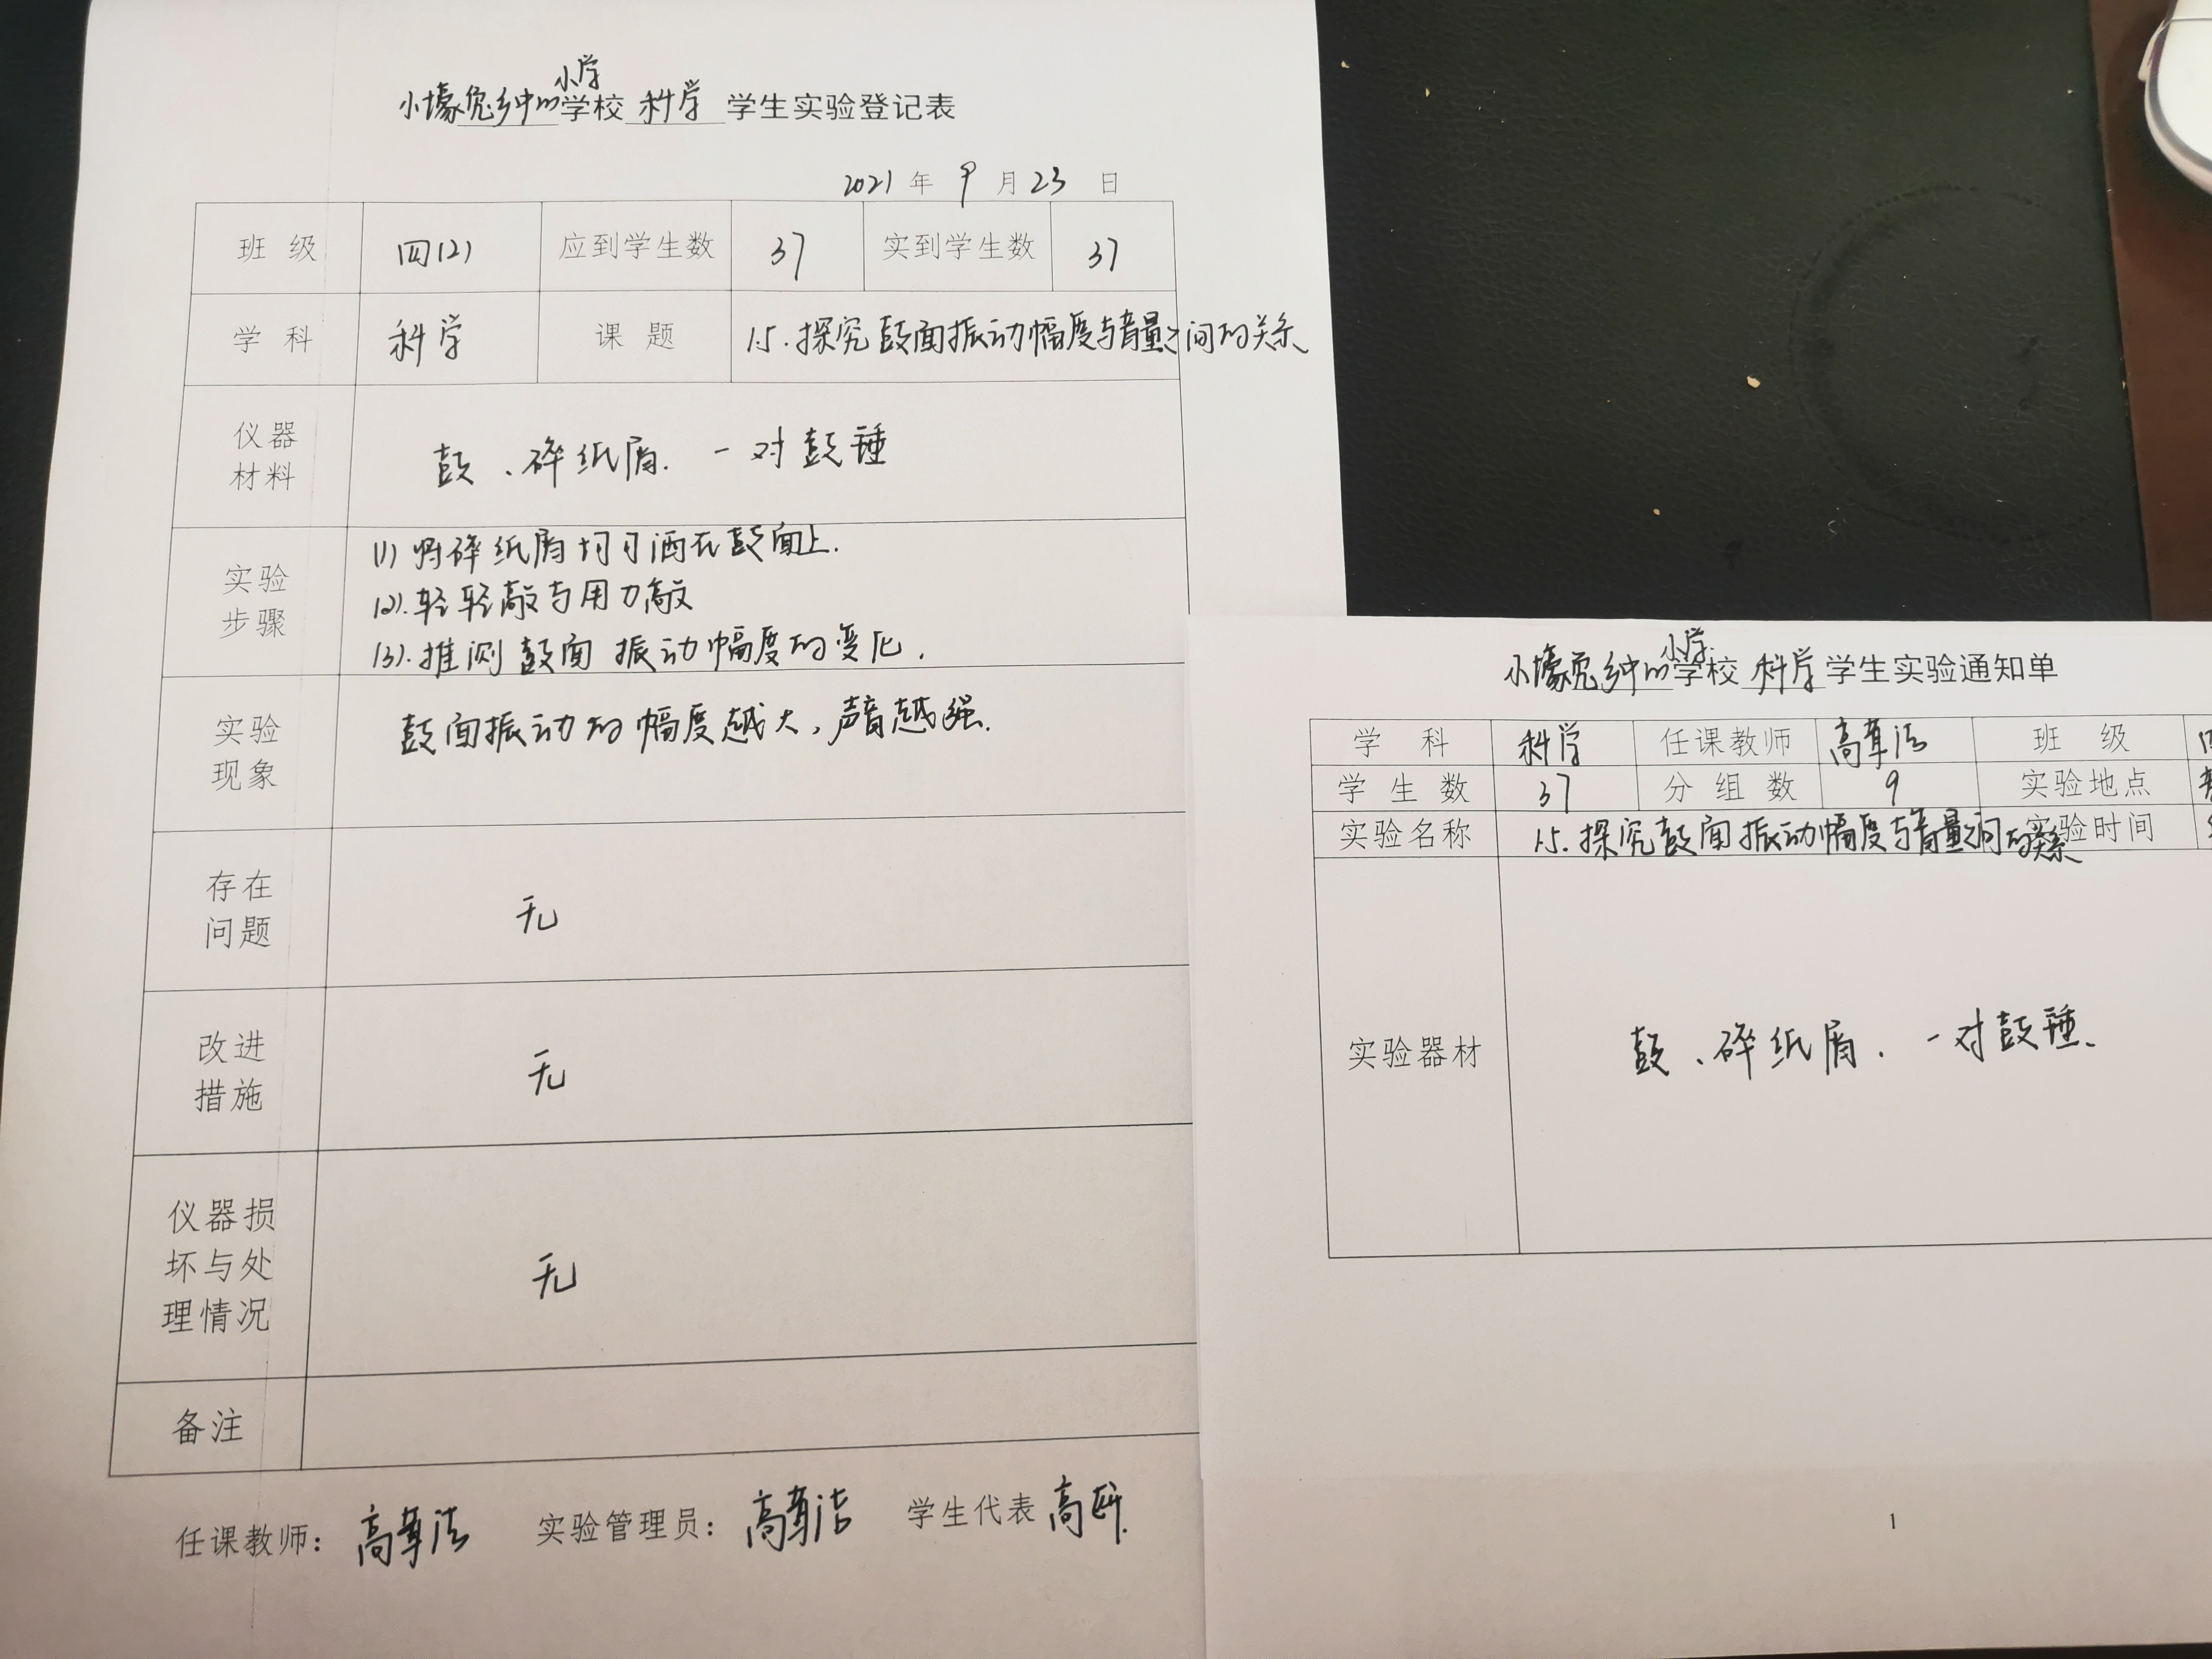 小壕兔乡中心小学学校 科学 学生实验登记表
2021 年 9 月 23 日
班 级 四(2) 应到学生数 37 实到学生数 37
学 科 科学 课 题 1.5.探究鼓面振动幅度与音量之间的关系
仪器
材料
鼓、碎纸屑、一对鼓锤
实验
步骤
(1) 将碎纸屑均匀洒在鼓面上.
(2).轻轻敲与用力敲
(3).推测鼓面振动幅度的变化.
实验
现象
鼓面振动的幅度越大,声音越强.
存在
问题
无
改进
措施
无
仪器损
坏与处
理情况
无
备注
任课教师: 高 实验管理员: 高 学生代表 高
小壕兔乡中心小学学校 科学 学生实验通知单
学 科 科学 任课教师 高 班 级
学 生 数 37 分 组 数 9 实验地点
实验名称 1.5.探究鼓面振动幅度与音量之间的关系 实验时间
实验器材 鼓、碎纸屑、一对鼓锤、
1